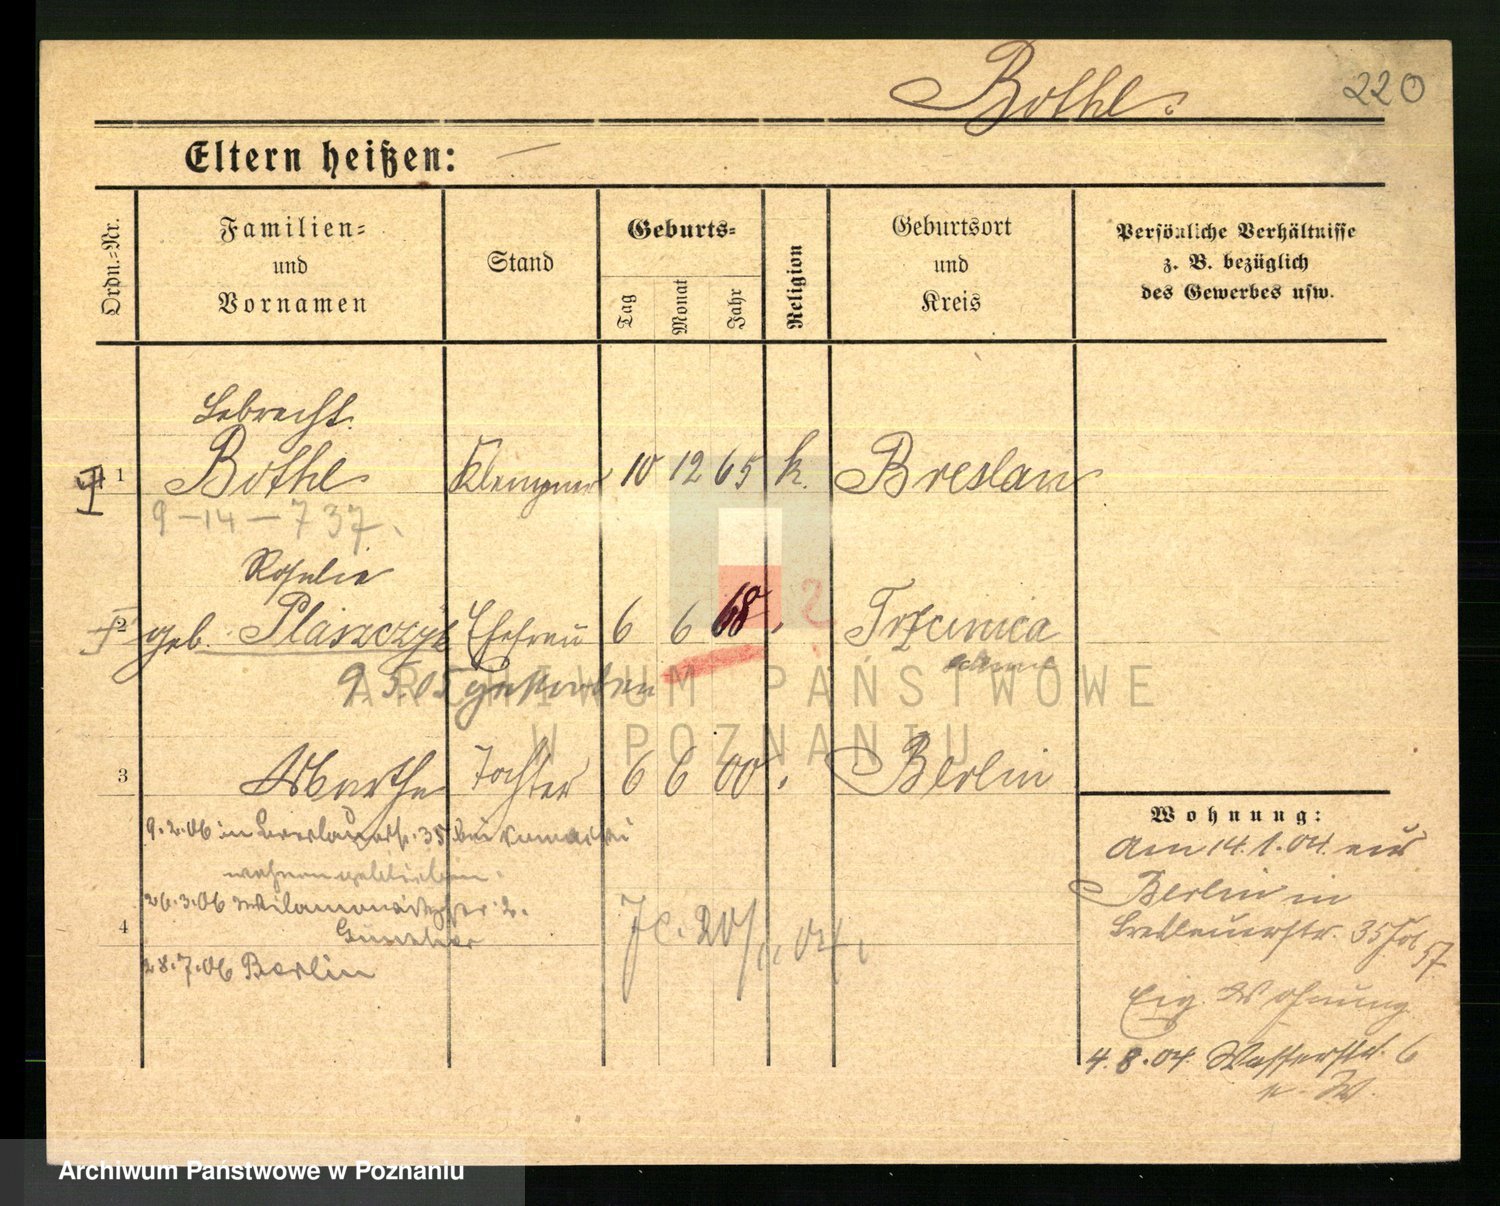 Bothe.
220
Eltern heißen: —
Ordn.-Nr.
Familien-
und
Vornamen
Stand
Geburts-
Tag
Monat
Jahr
Religion
Geburtsort
und
Kreis
Persönliche Verhältnisse
z. B. bezüglich
des Gewerbes usw.
Lebrecht
1 Bothe Klempner 10 12 65 k. Breslau
9-14-737.
Rosalie
2 geb. Plaszczyk Ehefrau 6 6 68 Trzcinica
9.5.05 gestorben
3 Martha Tochter 6 6 00 Berlin
9.2.06 in Breslauerstr. 35 bei
26.3.06
4
28.7.06 Berlin
20/11.04.
Wohnung:
Am 14.1.04. aus
Berlin in
Breslauerstr. 35
Eig. Wohnung
4.8.04. Wasserstr. 6
e. W.
ARCHIWUM PAŃSTWOWE
W POZNANIU
Archiwum Państwowe w Poznaniu